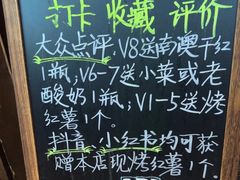 打卡 收藏 评价
大众点评,V8送南澳干红
1瓶;V6-7送小菜或老
酸奶1瓶;V1-5送烤
红薯1个。
抖音、小红书均可获
赠本店现烤红薯1个。